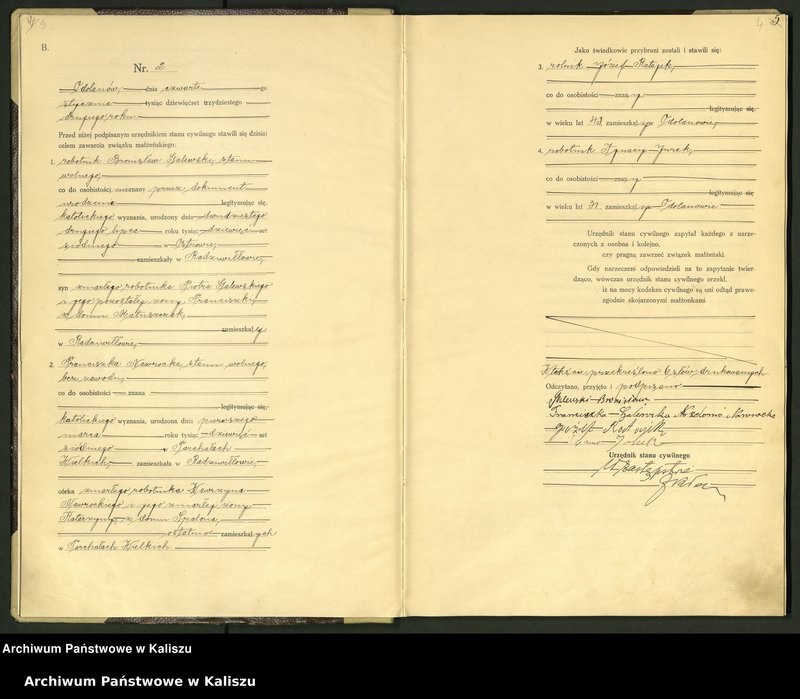 B.
Nr. 2
Odolanów, dnia czwarte go
stycznia tysiąc dziewięćset trzydziestego
drugiego roku
Przed niżej podpisanym urzędnikiem stanu cywilnego stawili się dzisiaj
celem zawarcia związku małżeńskiego:
1. robotnik Bronisław Galewski, stanu
wolnego,
co do osobistości nieznany przez dokument
urodzenia legitymując się,
katolickiego wyznania, urodzony dnia dwudziestego
drugiego lipca roku tysiąc dziewięć set
siódmego w Ostrowie,
zamieszkały w Radziwiłłowie,
syn zmarłego robotnika Piotra Galewskiego
i jego pozostałej żony Franciszki
z domu Matuszczak,
zamieszkał ej
w Radziwiłłowie,
2. Franciszka Nawrocka, stanu wolnego,
bez zawodu,
co do osobistości znana
legitymując się,
katolickiego wyznania, urodzona dnia pierwszego
marca roku tysiąc dziewięć set
siódmego w Tarchałach
Wielkich, zamieszkała w Radziwiłłowie,
córka zmarłego robotnika Wawrzyna
Nawrockiego i jego zmarłej żony
Katarzyny, z domu
ostatnio zamieszkał ych
w Tarchałach Wielkich
Jako świadkowie przybrani zostali i stawili się:
3. rolnik Józef Ratajek,
co do osobistości znan y
legitymując się,
w wieku lat 43 zamieszkał y w Odolanowie,
4. robotnik Ignacy Jurek,
co do osobistości znan y
legitymując się
w wieku lat 31 zamieszkał y w Odolanowie
Urzędnik stanu cywilnego zapytał każdego z narze-
czonych z osobna i kolejno,
czy pragną zawrzeć związek małżeński.
Gdy narzeczeni odpowiedzieli na to zapytanie twier-
dząco, wówczas urzędnik stanu cywilnego orzekł,
iż na mocy kodeksu cywilnego są oni odtąd prawo-
zgodnie skojarzonymi małżonkami.
przekreślono 6 słów drukowanych
Odczytano, przyjęto i podpisano
Galewski Bronisław
Franciszka Galewska z domu Nawrocka
Józef Ratajek
Urzędnik stanu cywilnego
W zastępstwie
Archiwum Państwowe w Kaliszu
Archiwum Państwowe w Kaliszu